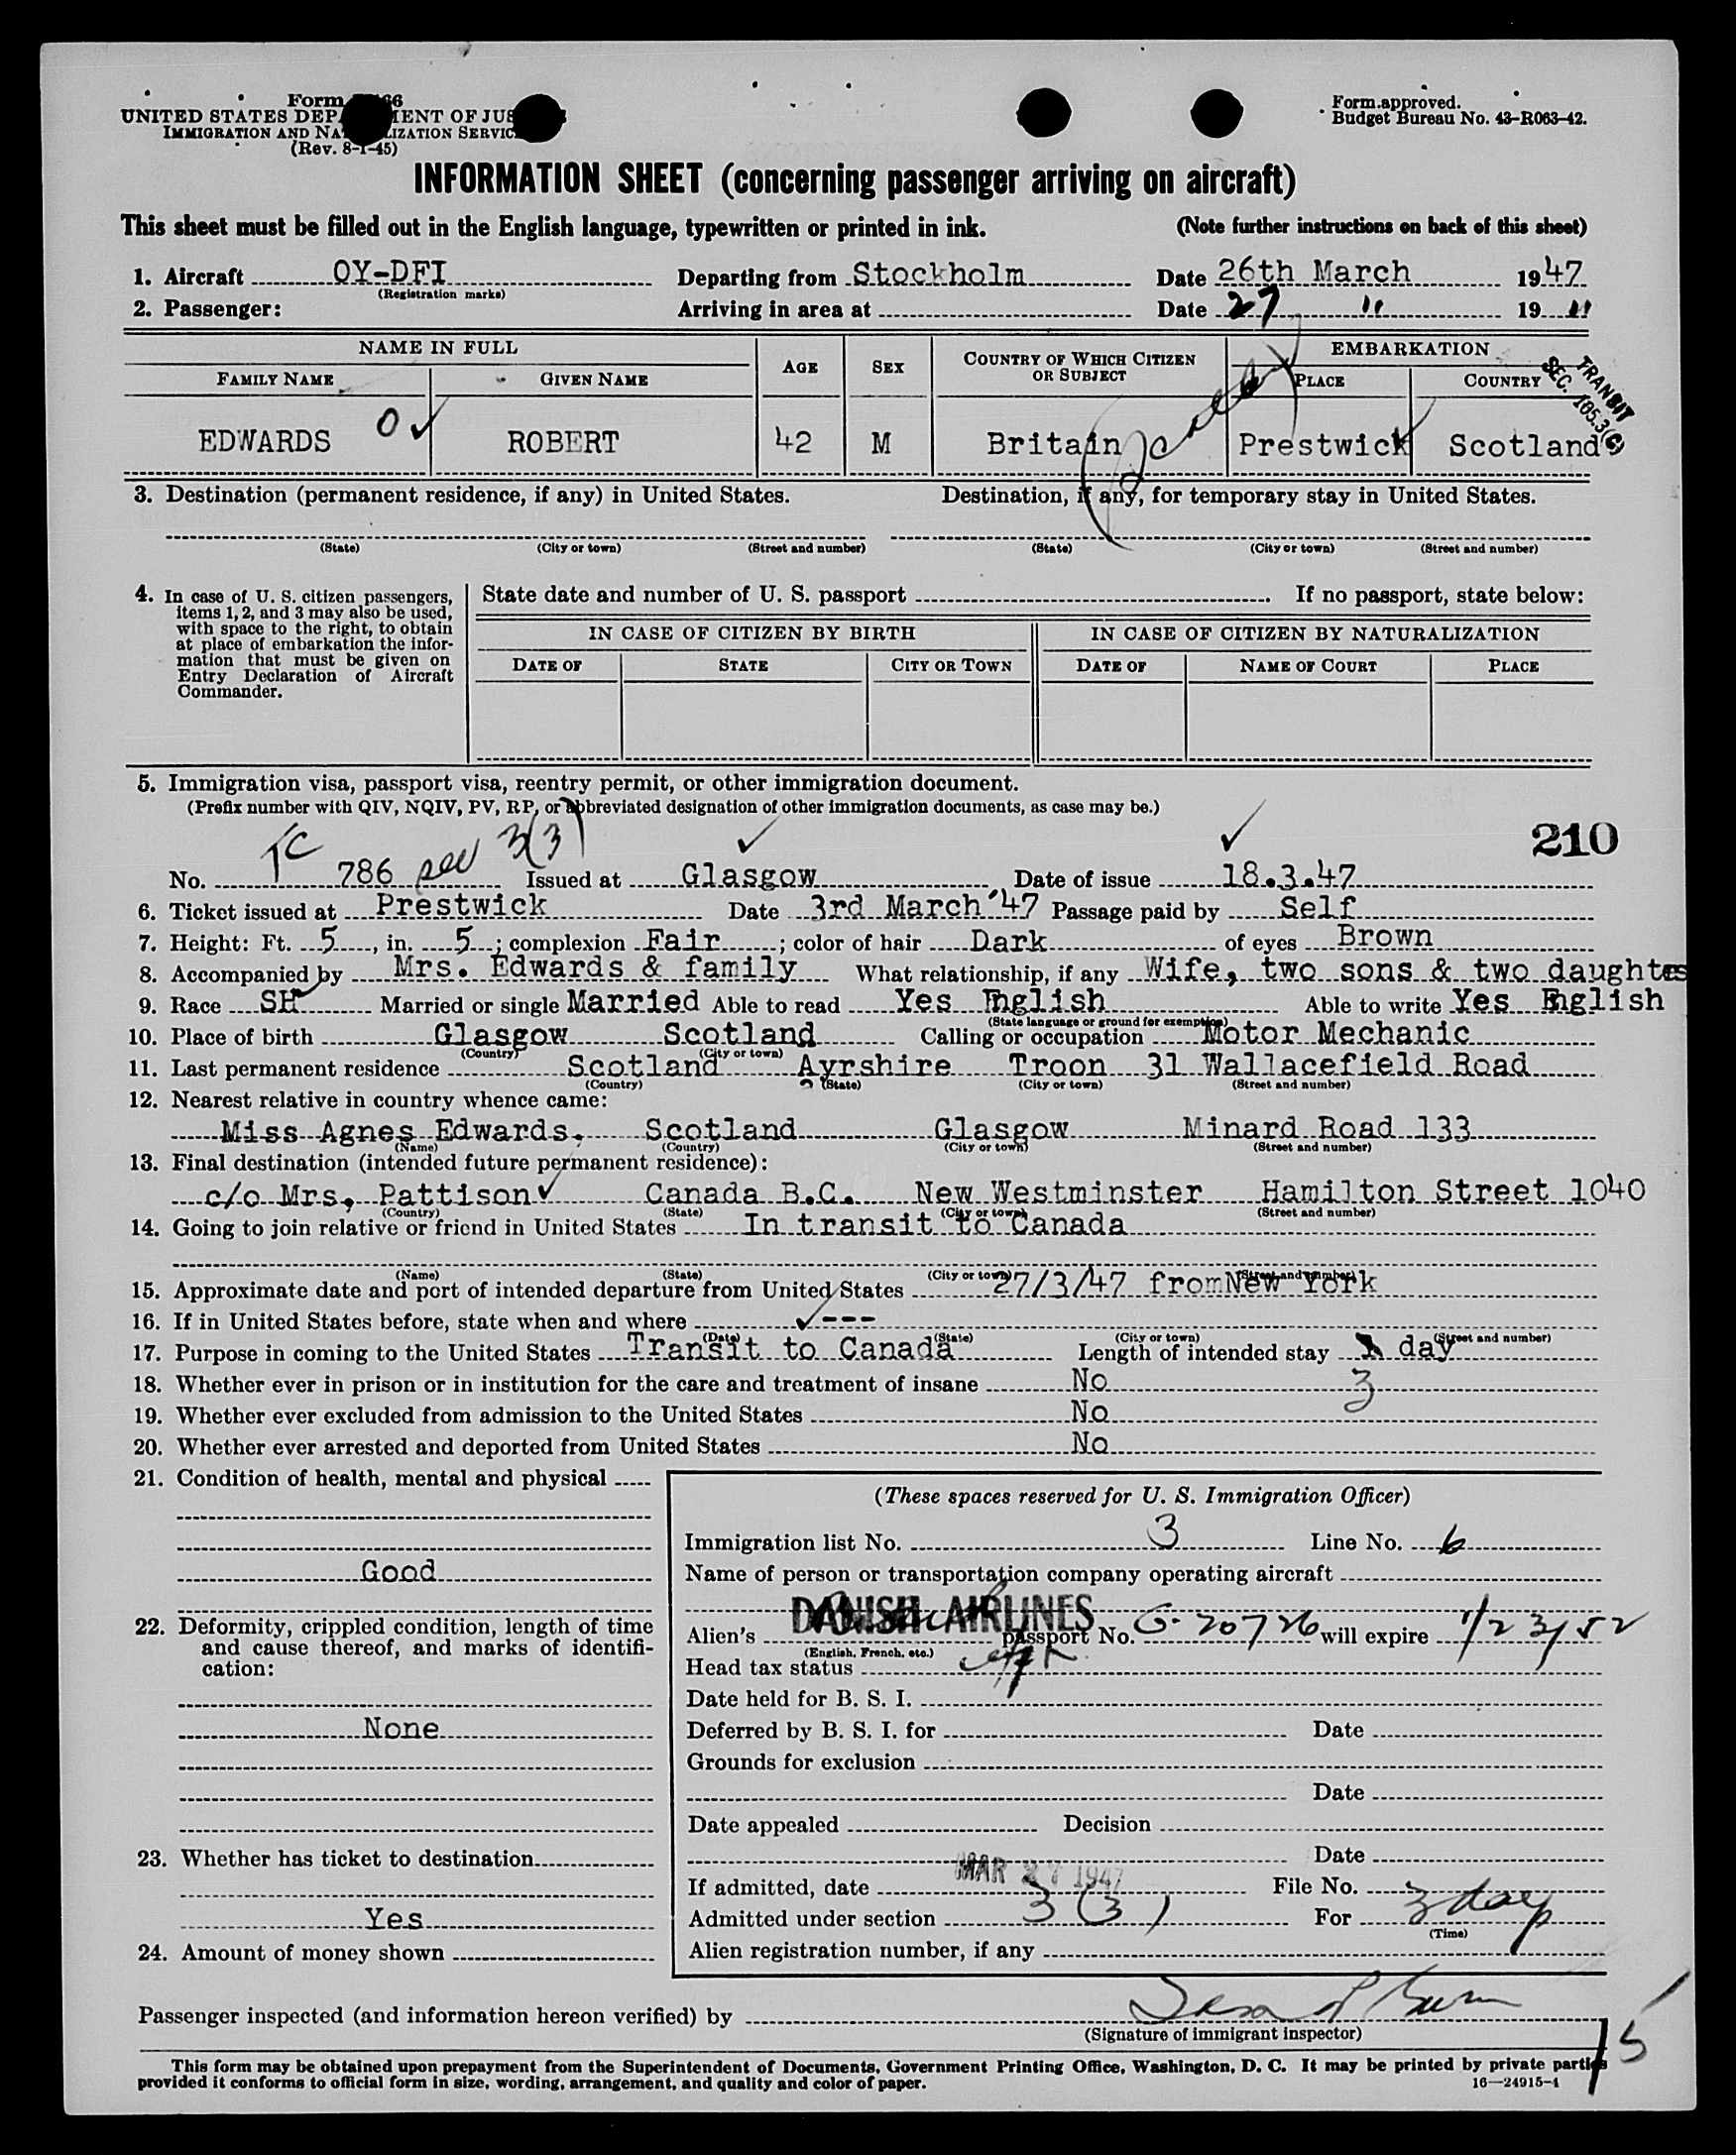 Form 66
UNITED STATES DEP MENT OF JUS
IMMIGRATION AND NA IZATION SERVIC
(Rev. 8-1-45)
Form approved.
Budget Bureau No. 43-R063-42.
INFORMATION SHEET (concerning passenger arriving on aircraft)
This sheet must be filled out in the English language, typewritten or printed in ink. (Note further instructions on back of this sheet)
1. Aircraft OY-DFI Departing from Stockholm Date 26th March 1947
(Registration marks)
2. Passenger: Arriving in area at Date 27 " 19 "
NAME IN FULL AGE SEX COUNTRY OF WHICH CITIZEN OR SUBJECT EMBARKATION
FAMILY NAME GIVEN NAME PLACE COUNTRY
TRANSIT
SEC. 105.3(C)
EDWARDS 0 ✓ ROBERT 42 M Britain Prestwick Scotland
3. Destination (permanent residence, if any) in United States. Destination, if any, for temporary stay in United States.
(State) (City or town) (Street and number) (State) (City or town) (Street and number)
4. In case of U. S. citizen passengers, items 1, 2, and 3 may also be used, with space to the right, to obtain at place of embarkation the information that must be given on Entry Declaration of Aircraft Commander.
State date and number of U. S. passport If no passport, state below:
IN CASE OF CITIZEN BY BIRTH IN CASE OF CITIZEN BY NATURALIZATION
DATE OF STATE CITY OR TOWN DATE OF NAME OF COURT PLACE
5. Immigration visa, passport visa, reentry permit, or other immigration document.
(Prefix number with QIV, NQIV, PV, RP, or abbreviated designation of other immigration documents, as case may be.)
210
No. TC 786 sec 3(3) Issued at Glasgow Date of issue 18.3.47
6. Ticket issued at Prestwick Date 3rd March '47 Passage paid by Self
7. Height: Ft. 5, in. 5; complexion Fair; color of hair Dark of eyes Brown
8. Accompanied by Mrs. Edwards & family What relationship, if any Wife, two sons & two daughtes
9. Race SH Married or single Married Able to read Yes English Able to write Yes English
(State language or ground for exemption)
10. Place of birth Glasgow Scotland Calling or occupation Motor Mechanic
(Country) (City or town)
11. Last permanent residence Scotland Ayrshire Troon 31 Wallacefield Road
(Country) (State) (City or town) (Street and number)
12. Nearest relative in country whence came:
Miss Agnes Edwards, Scotland Glasgow Minard Road 133
(Name) (Country) (City or town) (Street and number)
13. Final destination (intended future permanent residence):
c/o Mrs, Pattison ✓ Canada B.C. New Westminster Hamilton Street 1040
(Country) (State) (City or town) (Street and number)
14. Going to join relative or friend in United States In transit to Canada
(Name) (State) (City or town) (Street and number)
15. Approximate date and port of intended departure from United States 27/3/47 from New York
16. If in United States before, state when and where ✓ ---
(Date) (State) (City or town) (Street and number)
17. Purpose in coming to the United States Transit to Canada Length of intended stay day
3
18. Whether ever in prison or in institution for the care and treatment of insane No
19. Whether ever excluded from admission to the United States No
20. Whether ever arrested and deported from United States No
21. Condition of health, mental and physical
Good
22. Deformity, crippled condition, length of time and cause thereof, and marks of identification:
None
23. Whether has ticket to destination
Yes
24. Amount of money shown
(These spaces reserved for U. S. Immigration Officer)
Immigration list No. 3 Line No. 6
Name of person or transportation company operating aircraft
DANISH AIRLINES
Alien's passport No. G-20726 will expire 1/23/52
(English, French, etc.)
Head tax status
Date held for B. S. I.
Deferred by B. S. I. for Date
Grounds for exclusion
Date
Date appealed Decision
Date
If admitted, date MAR 27 1947 File No.
Admitted under section 3(3) For 3 days
(Time)
Alien registration number, if any
Passenger inspected (and information hereon verified) by
(Signature of immigrant inspector)
This form may be obtained upon prepayment from the Superintendent of Documents, Government Printing Office, Washington, D. C. It may be printed by private parties
provided it conforms to official form in size, wording, arrangement, and quality and color of paper. 16—24915-1